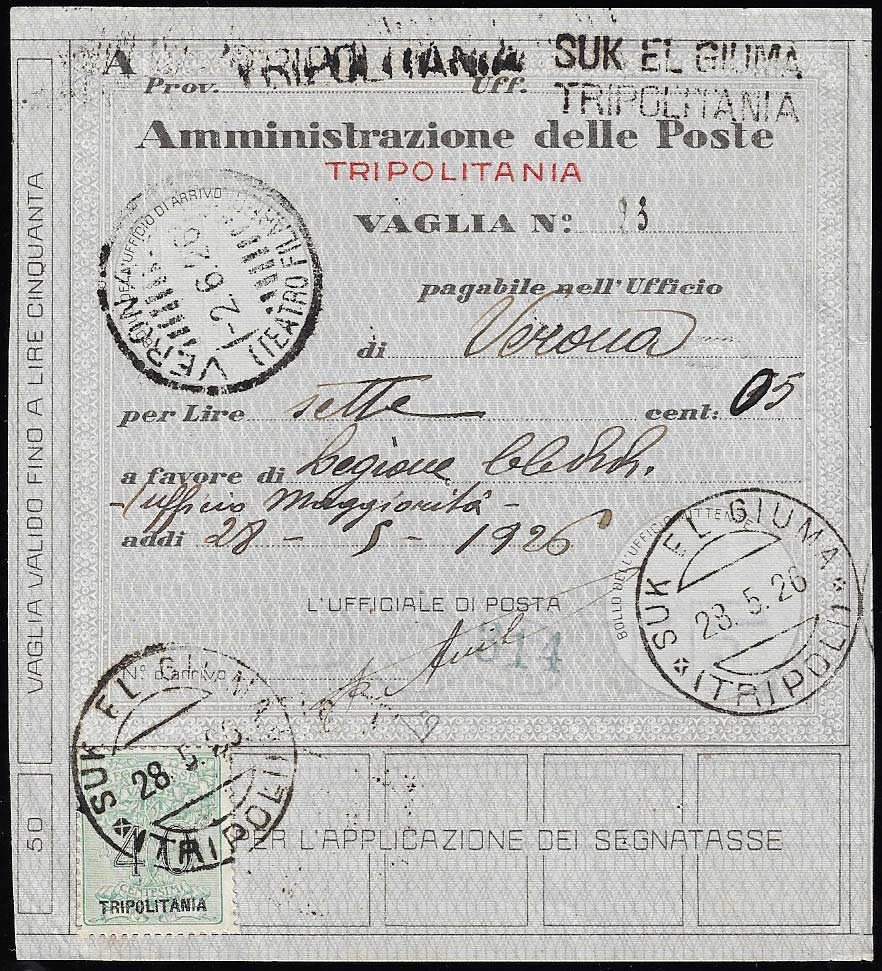 A TRIPOLITANIA SUK EL GIUMA
Prov. Uff. TRIPOLITANIA
Amministrazione delle Poste
TRIPOLITANIA
VAGLIA N: 23
pagabile nell'Ufficio
di Verona
per Lire sette cent: 05
a favore di Legione
ufficio Maggiorità -
addi 28 - 5 - 1926
L'UFFICIALE DI POSTA
314
N° d'arrivo
BOLLO DELL'UFFICIO DI ARRIVO
VERONA
(TEATRO FIL
-2.6.26
BOLLO DELL'UFFICIO EMITTENTE
SUK EL GIUMA
28.5.26
(TRIPOLI)
SUK EL GIUMA
28.5.26
(TRIPOLI)
VAGLIA VALIDO FINO A LIRE CINQUANTA
50
PER L'APPLICAZIONE DEI SEGNATASSE
40
CENTESIMI
TRIPOLITANIA